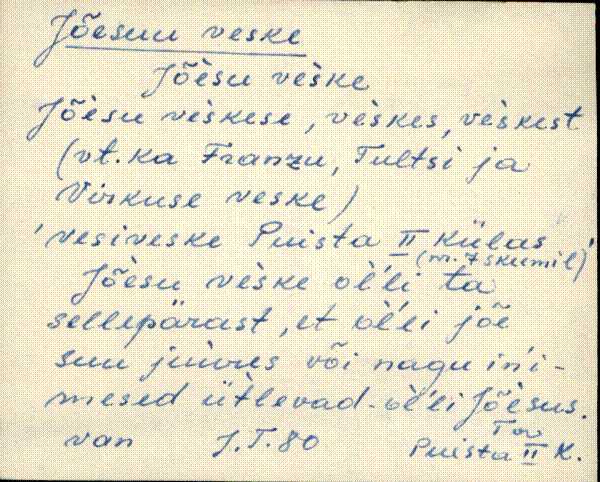 Jõesuu veske
Jõèsu vèske
Jõèsu vèskese, vèskes, vèskest
(vt. ka Franzu, Tultsi ja
Virkuse veske)
'vesiveske Puista II külas'
(m. 7skumil)
Jõèsu vèske òl'li ta
sellepärast, et òl'li jõe
suu juures või nagu in'i-
mesed ütlevad - òl'li Jõèsus.
van J.T.80 Tor
Puista II K.